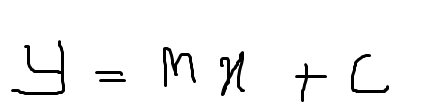 y = mx + c